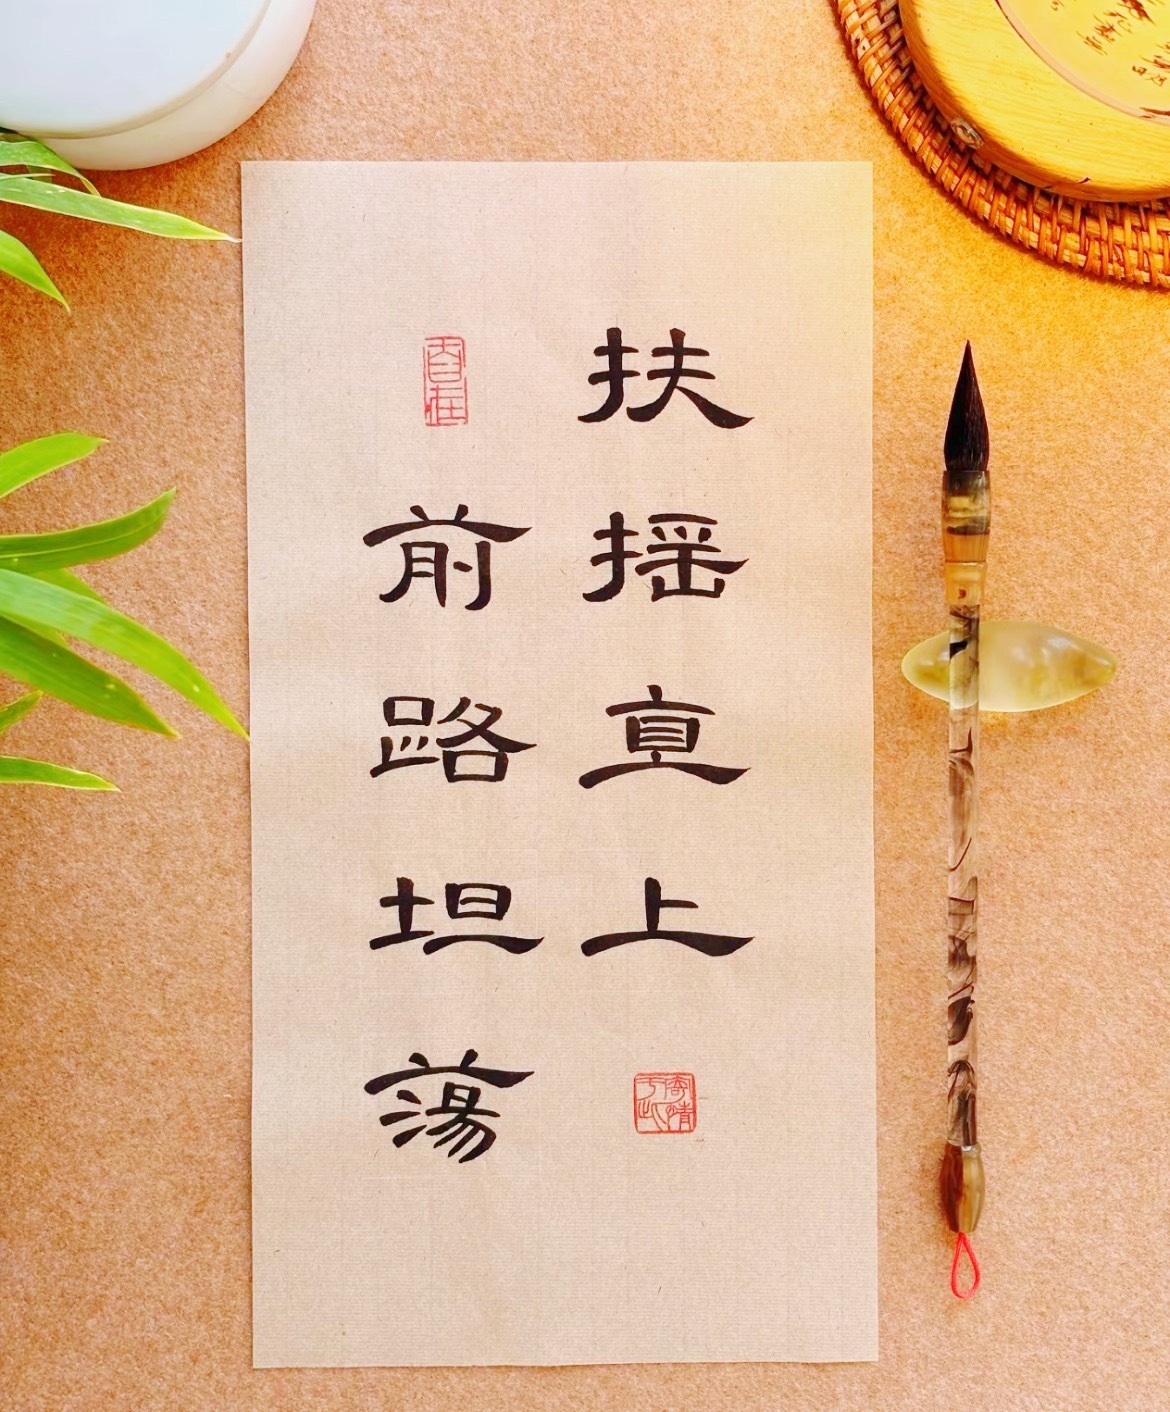 扶摇直上
前路坦蕩